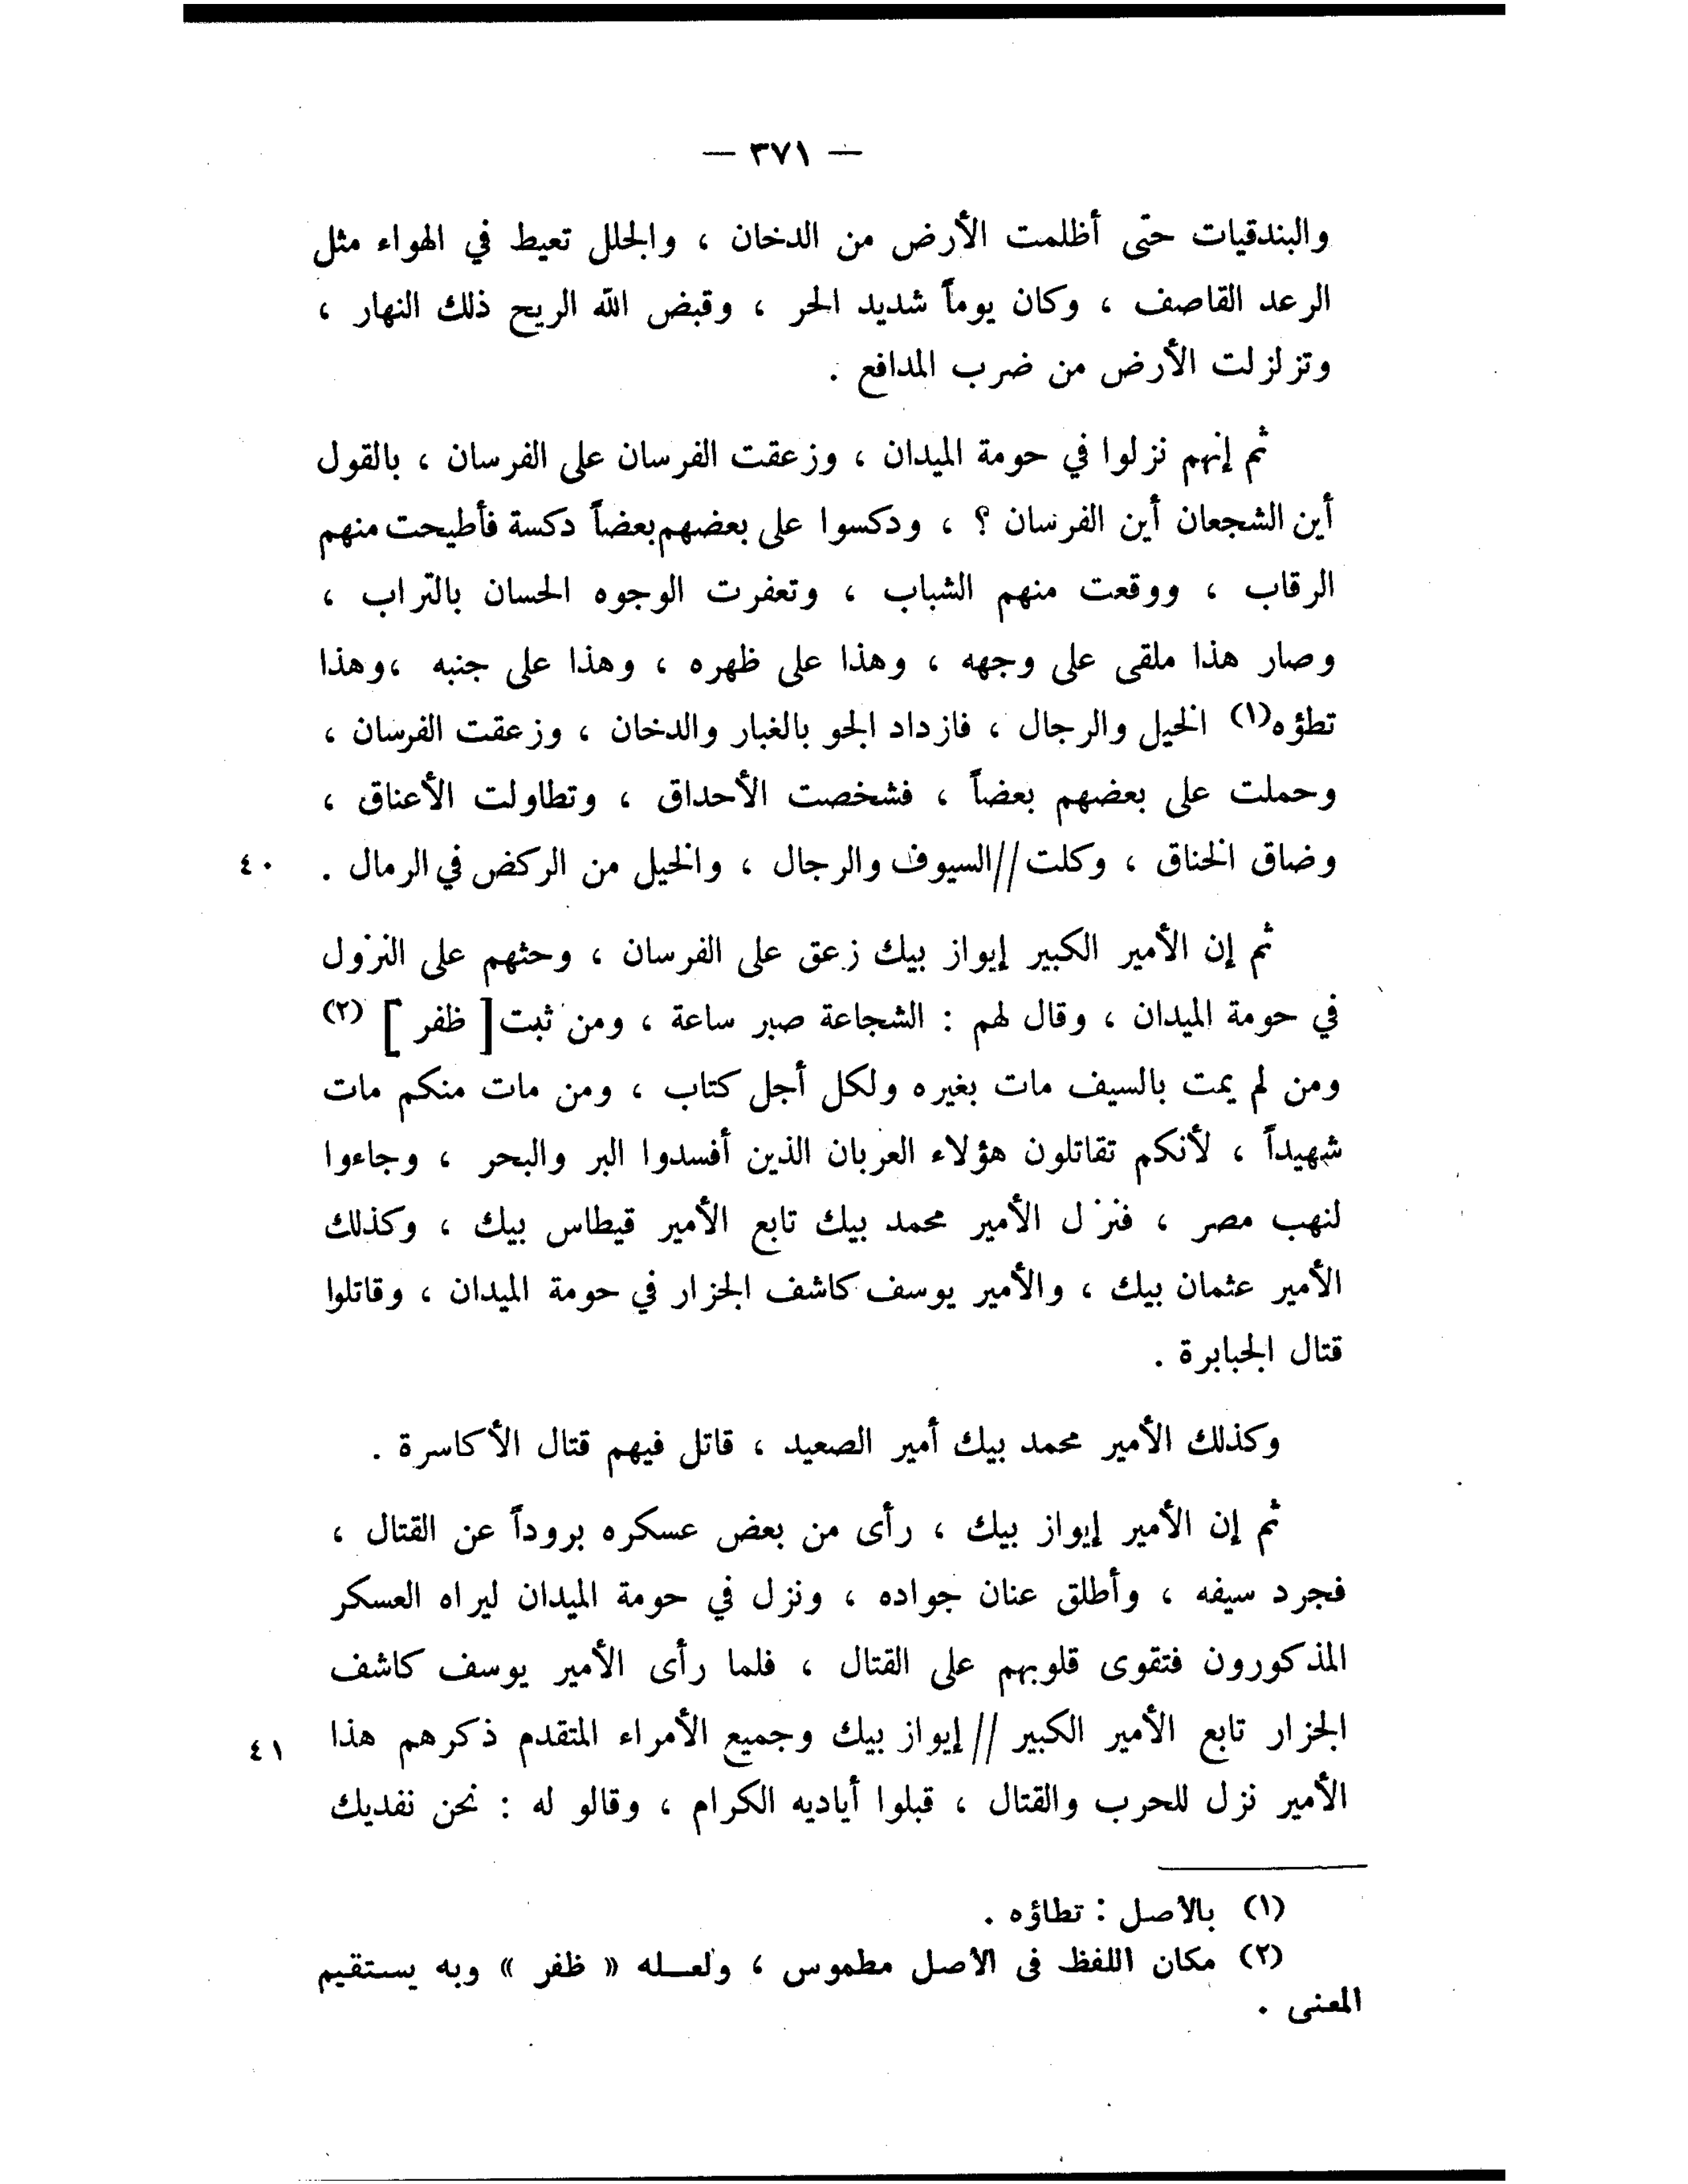 — ٣٧١ —
والبندقيات حتى أظلمت الأرض من الدخان ، والجلل تعيط في الهواء مثل
الرعد القاصف ، وكان يوماً شديد الحر ، وقبض الله الريح ذلك النهار ،
وتزلزلت الأرض من ضرب المدافع .
ثم إنهم نزلوا في حومة الميدان ، وزعقت الفرسان على الفرسان ، بالقول
أين الشجعان أين الفرسان ؟ ، ودكسوا على بعضهم بعضاً دكسة فأطيحت منهم
الرقاب ، ووقعت منهم الشباب ، وتعفرت الوجوه الحسان بالتراب ،
وصار هذا ملقى على وجهه ، وهذا على ظهره ، وهذا على جنبه ، وهذا
تطؤه(١) الخيل والرجال ، فازداد الجو بالغبار والدخان ، وزعقت الفرسان ،
وحملت على بعضهم بعضاً ، فشخصت الأحداق ، وتطاولت الأعناق ،
وضاق الخناق ، وكلت // السيوف والرجال ، والخيل من الركض في الرمال . ٤٠
ثم إن الأمير الكبير إيواز بيك زعق على الفرسان ، وحثهم على النزول
في حومة الميدان ، وقال لهم : الشجاعة صبر ساعة ، ومن ثبت [ ظفر ] (٢)
ومن لم يمت بالسيف مات بغيره ولكل أجل كتاب ، ومن مات منكم مات
شهيداً ، لأنكم تقاتلون هؤلاء العربان الذين أفسدوا البر والبحر ، وجاءوا
لنهب مصر ، فنزل الأمير محمد بيك تابع الأمير قيطاس بيك ، وكذلك
الأمير عثمان بيك ، والأمير يوسف كاشف الجزار في حومة الميدان ، وقاتلوا
قتال الجبابرة .
وكذلك الأمير محمد بيك أمير الصعيد ، قاتل فيهم قتال الأكاسرة .
ثم إن الأمير إيواز بيك ، رأى من بعض عسكره بروداً عن القتال ،
فجرد سيفه ، وأطلق عنان جواده ، ونزل في حومة الميدان ليراه العسكر
المذكورون فتقوى قلوبهم على القتال ، فلما رأى الأمير يوسف كاشف
الجزار تابع الأمير الكبير // إيواز بيك وجميع الأمراء المتقدم ذكرهم هذا ٤١
الأمير نزل للحرب والقتال ، قبلوا أياديه الكرام ، وقالو له : نحن نفديك
(١) بالأصل : تطاؤه .
(٢) مكان اللفظ فى الأصل مطموس ، ولعله « ظفر » وبه يستقيم
المعنى .